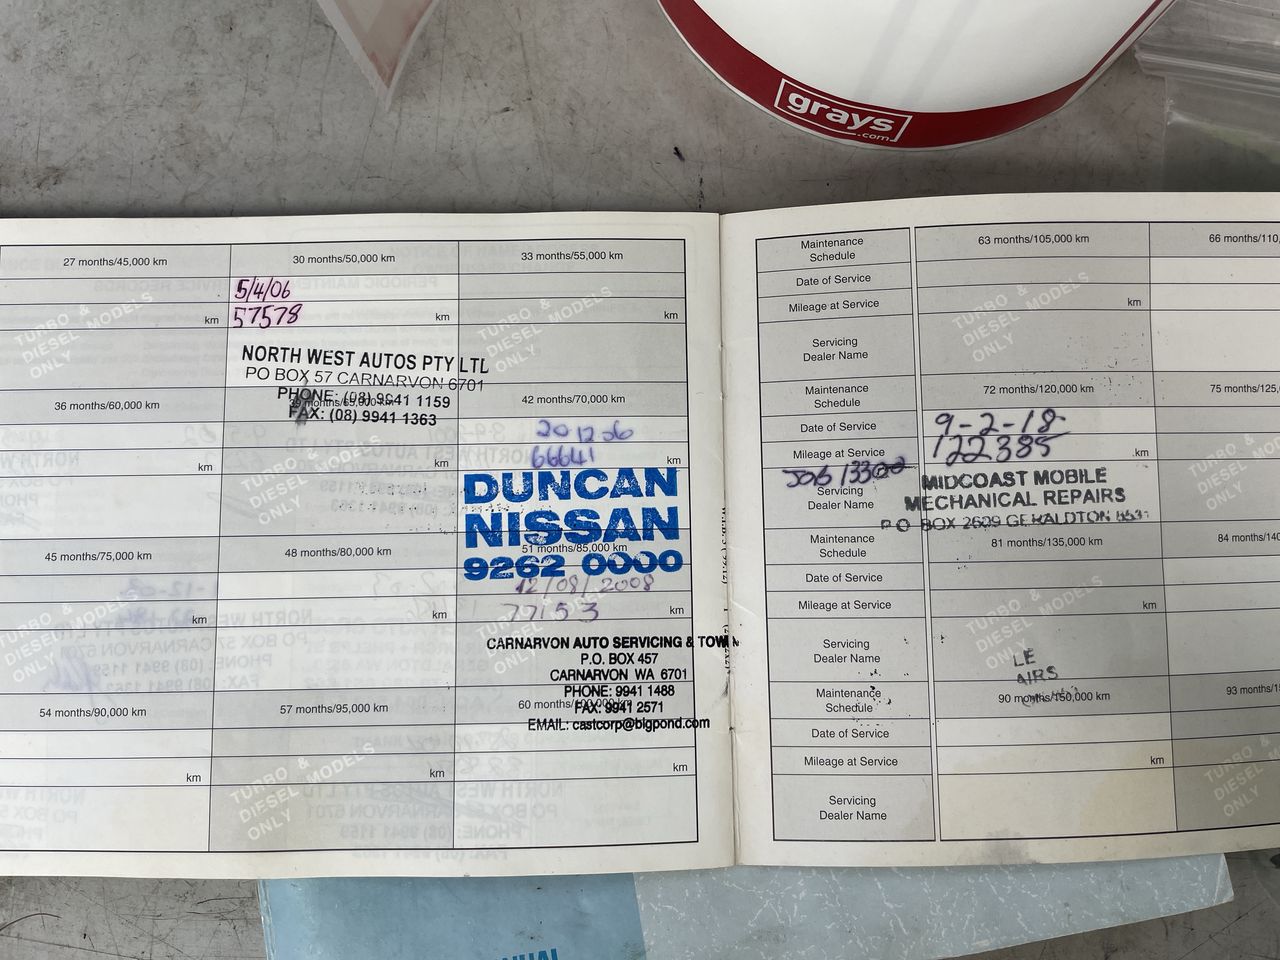 grays
.com
27 months/45,000 km
30 months/50,000 km
33 months/55,000 km
5/4/06
km
57578
km
km
TURBO &
DIESEL MODELS
ONLY
TURBO &
DIESEL MODELS
ONLY
NORTH WEST AUTOS PTY LTD
PO BOX 57 CARNARVON 6701
PHONE: (08) 9941 1159
FAX: (08) 9941 1363
36 months/60,000 km
39 months/65,000 km
42 months/70,000 km
20 12 06
km
66641
km
DUNCAN
NISSAN
9262 0000
45 months/75,000 km
48 months/80,000 km
51 months/85,000 km
12/08/2008
km
km
77153
km
TURBO &
DIESEL MODELS
ONLY
CARNARVON AUTO SERVICING & TOWIN
P.O. BOX 457
CARNARVON WA 6701
PHONE: 9941 1488
FAX: 9941 2571
EMAIL: castcorp@bigpond.com
54 months/90,000 km
57 months/95,000 km
60 months/100,000 km
km
km
km
TURBO &
DIESEL MODELS
ONLY
Maintenance
Schedule
63 months/105,000 km
66 months/110,
Date of Service
Mileage at Service
km
Servicing
Dealer Name
TURBO &
DIESEL MODELS
ONLY
Maintenance
Schedule
72 months/120,000 km
75 months/125,
Date of Service
9-2-18
Mileage at Service
122385
km
JOB 13300
Servicing
Dealer Name
MIDCOAST MOBILE
MECHANICAL REPAIRS
P O BOX 2609 GERALDTON
Maintenance
Schedule
81 months/135,000 km
84 months/140
Date of Service
Mileage at Service
km
Servicing
Dealer Name
TURBO &
DIESEL MODELS
ONLY
LE
AIRS
Maintenance
Schedule
90 months/150,000 km
93 months/15
Date of Service
Mileage at Service
km
Servicing
Dealer Name
TURBO &
DIESEL
ONLY